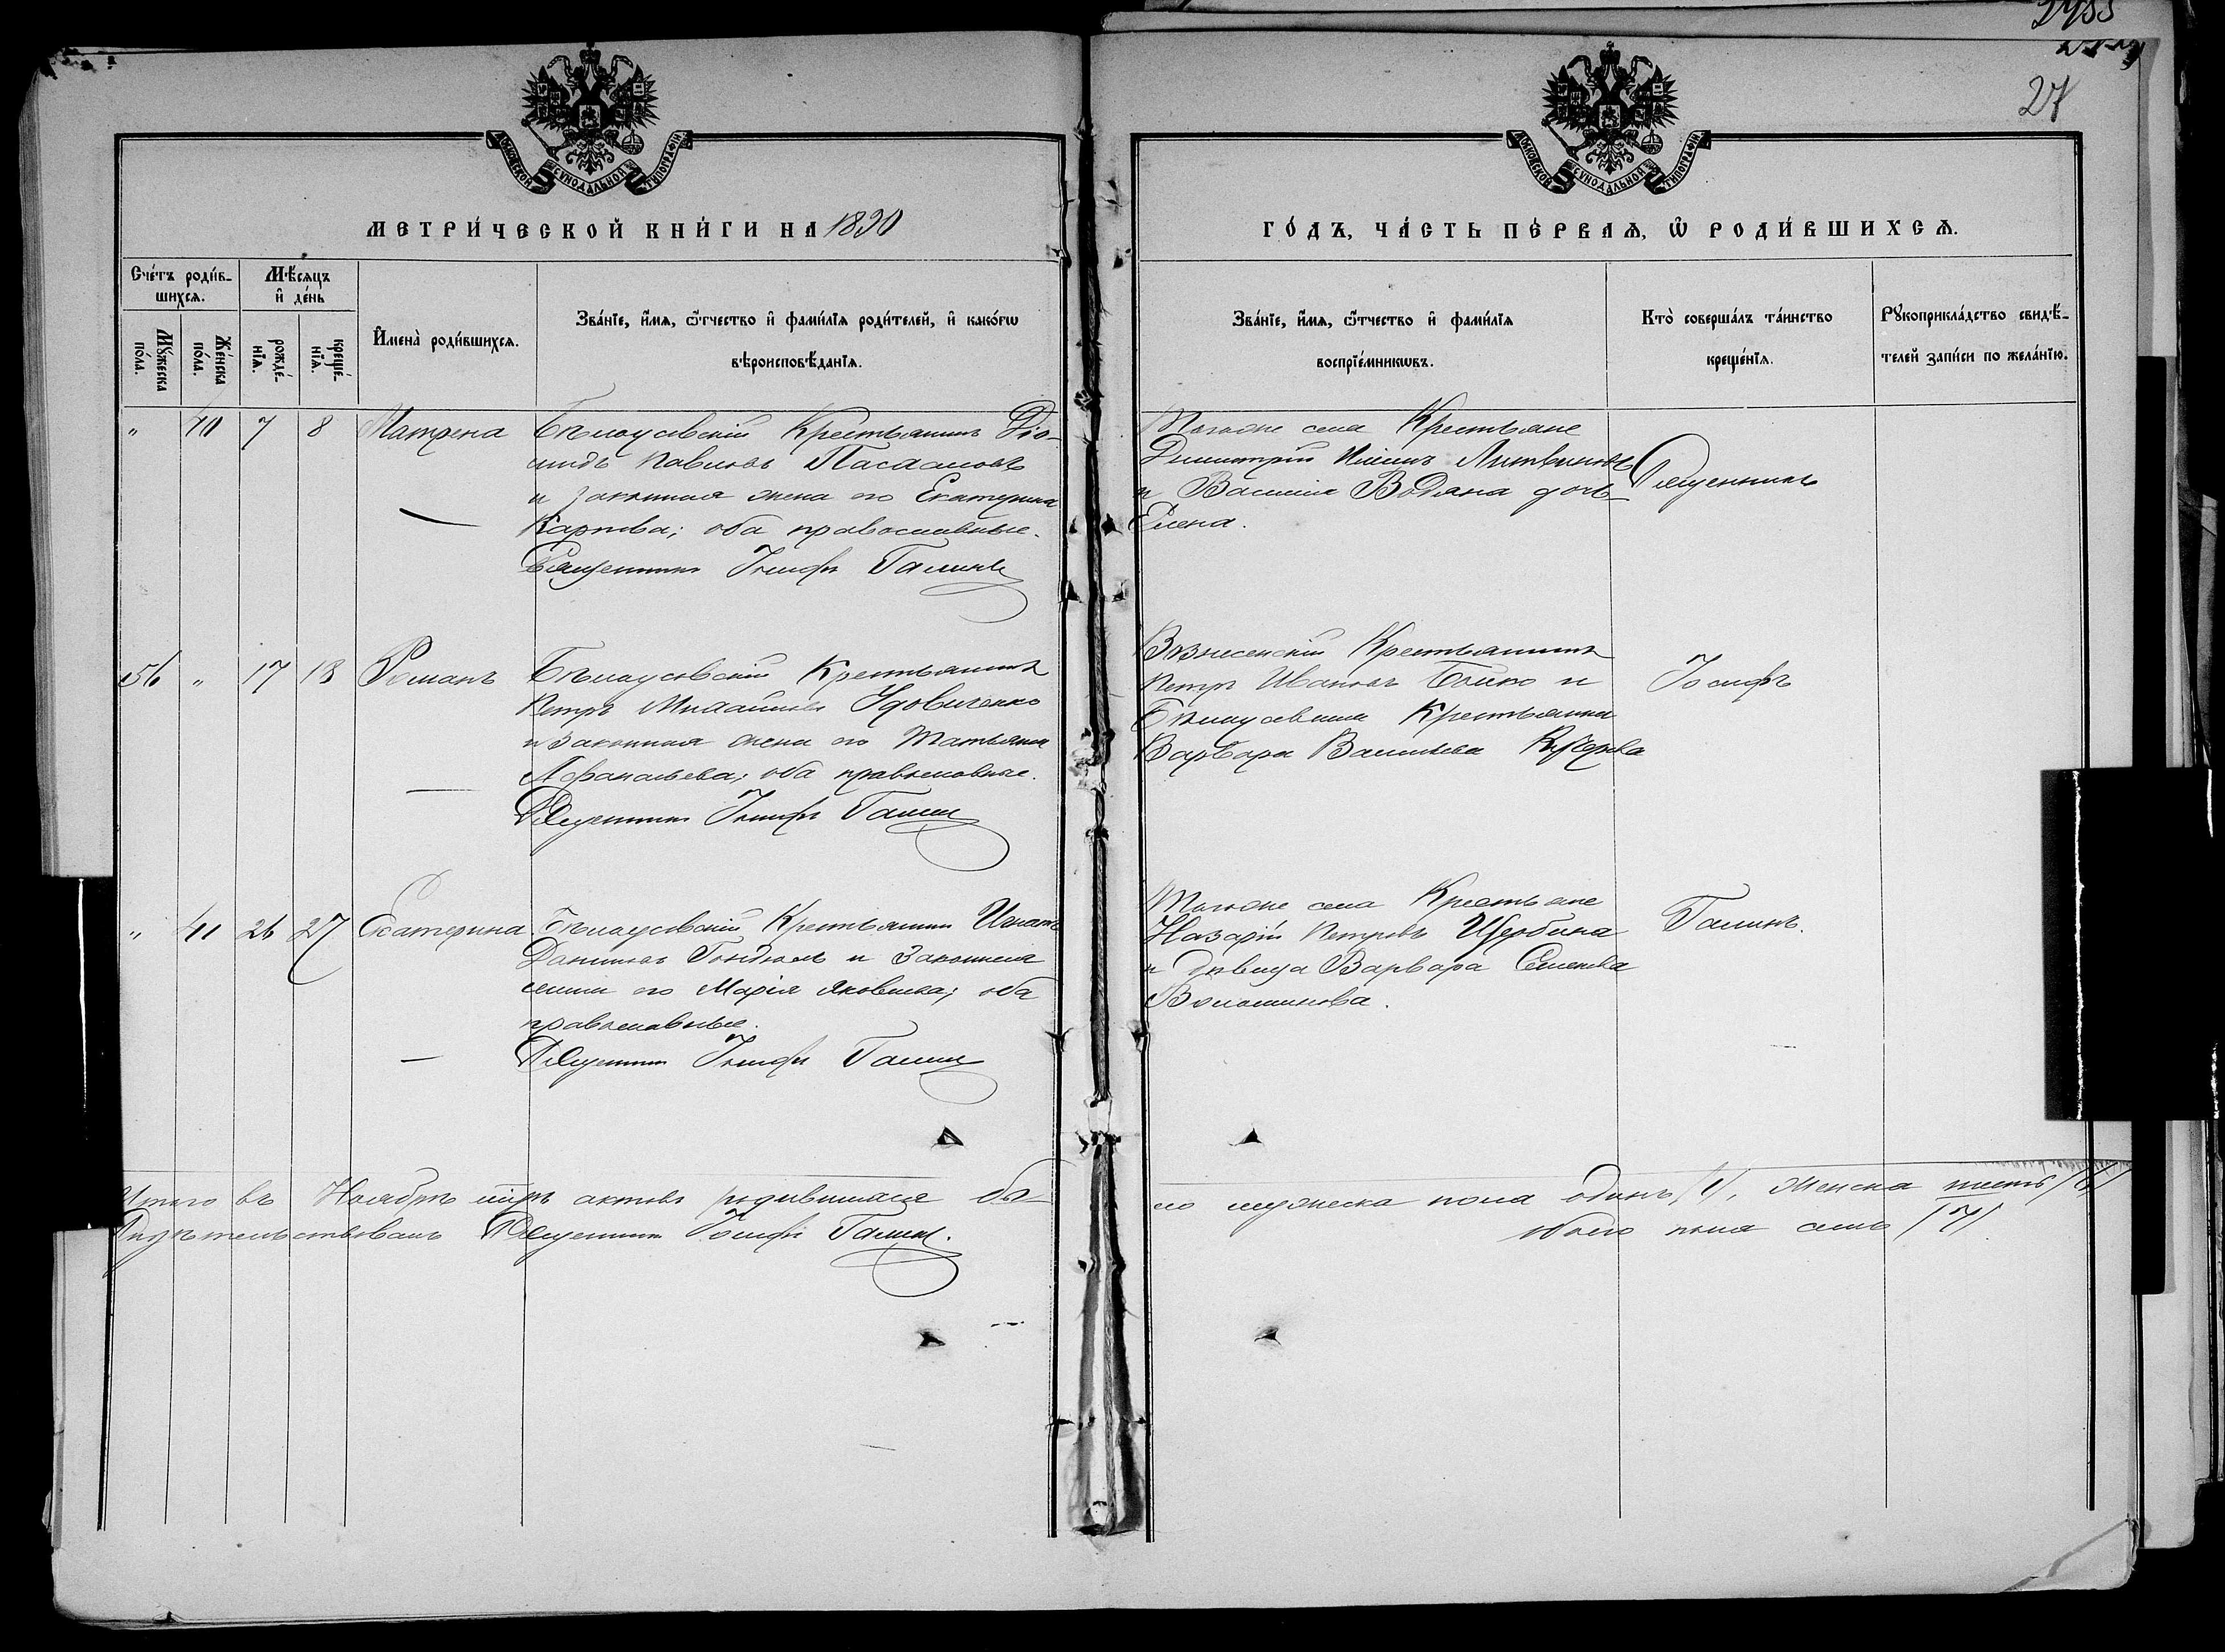 27
МОСКОВСКОЙ СѴНОДАЛЬНОЙ ТИПОГРАФІИ
МОСКОВСКОЙ СѴНОДАЛЬНОЙ ТИПОГРАФІИ
МЕТРИ́ЧЕСКОЙ КНИ́ГИ НА 1890
ГО́ДЪ, ЧА́СТЬ ПЕ́РВАѦ, Ѡ РОДИ́ВШИХСѦ.
Сче́тъ роди́в-
шихсѧ.
Мѣ́сяцъ
и҆ де́нь
Мꙋ́жеска
по́ла.
Же́нска
по́ла.
рожде́-
нїѧ.
креще́-
нїѧ.
И҆мена̀ роди́вшихсѧ.
Зва́нїе, и҆́мѧ, ѻ҆́тчество и҆ фами́лїѧ роди́телей, и҆ како́гѡ
вѣроисповѣ́данїѧ.
Зва́нїе, и҆́мѧ, ѻ҆́тчество и҆ фами́лїѧ
воспрїе́мникѡвъ.
Кто̀ соверша́лъ та́инство
креще́нїѧ.
Рꙋкоприкла́дство свидѣ́-
телей за́писи по жела́нїю.
" 40 7 8 Матрена Бѣлоусовскій Крестьянинъ Діо-
мидъ Павловъ
и законная жена его Екатерина
Карпова; оба православные.
Священникъ Іосифъ Галинъ
Тогоже села Крестьяне
Димитрій Литвиновъ
и Василія Водяна дочь
Елена.
Священникъ
56 " 17 18 Романъ Бѣлоусовскій Крестьянинъ
Петръ Михайловъ Удовиченко
и законная жена его Татьяна
Афанасьева; оба православные.
Священникъ Іосифъ Галинъ
Вознесенскій Крестьянинъ
Петръ Ивановъ Бойко и
Бѣлоусовская Крестьянка
Варвара Васильева
Іосифъ
" 41 26 27 Екатерина Бѣлоусовскій Крестьянинъ Игнатъ
Даниловъ и законная
жена его Марія Яковлева; оба
православные.
Священникъ Іосифъ Галинъ
Тогоже села Крестьяне
Назарій Петровъ Щербина
и дѣвица Варвара Семенова
Волошинова.
Галинъ.
Итого въ Ноябрѣ мцѣ актовъ родившихся бы-
ло мужеска пола одинъ /1/, женска шесть /6/
обоего пола семь /7/.
Свидѣтельствовалъ Священникъ Іосифъ Галинъ.